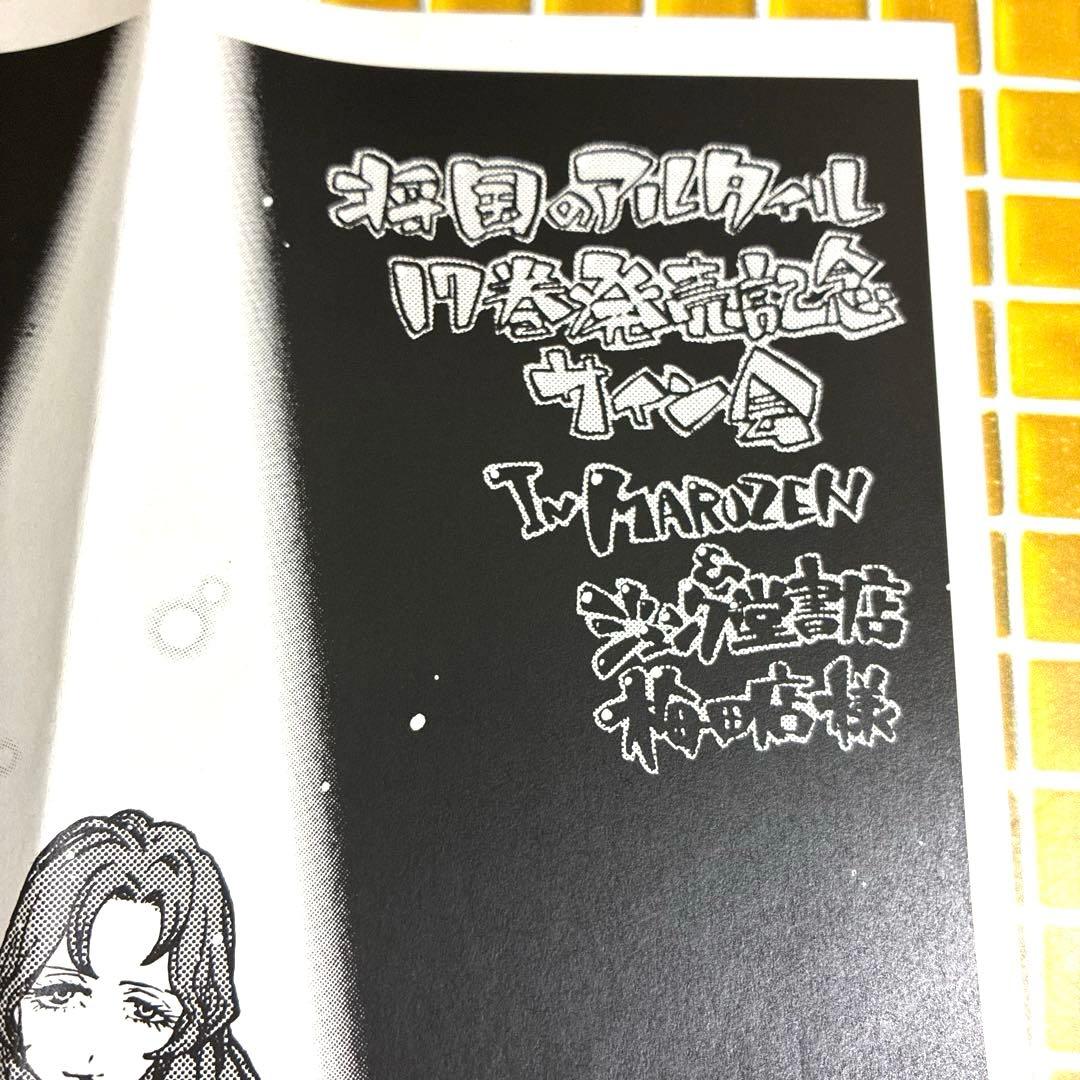 将国のアルタイル
17巻発売記念
サイン会
In MARUZEN
&
ジュンク堂書店
梅田店様